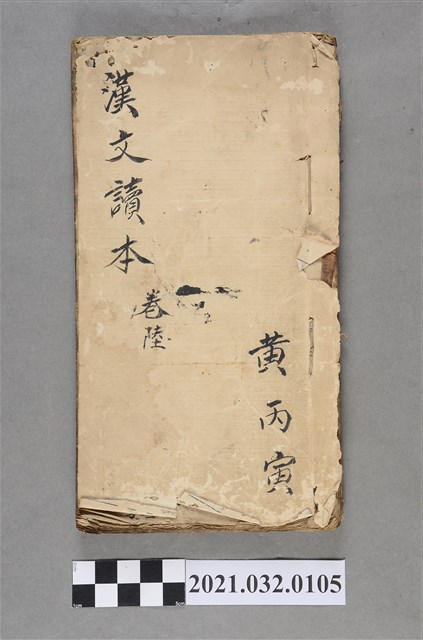 漢文讀本
卷陸
黄丙寅
2021.032.0105